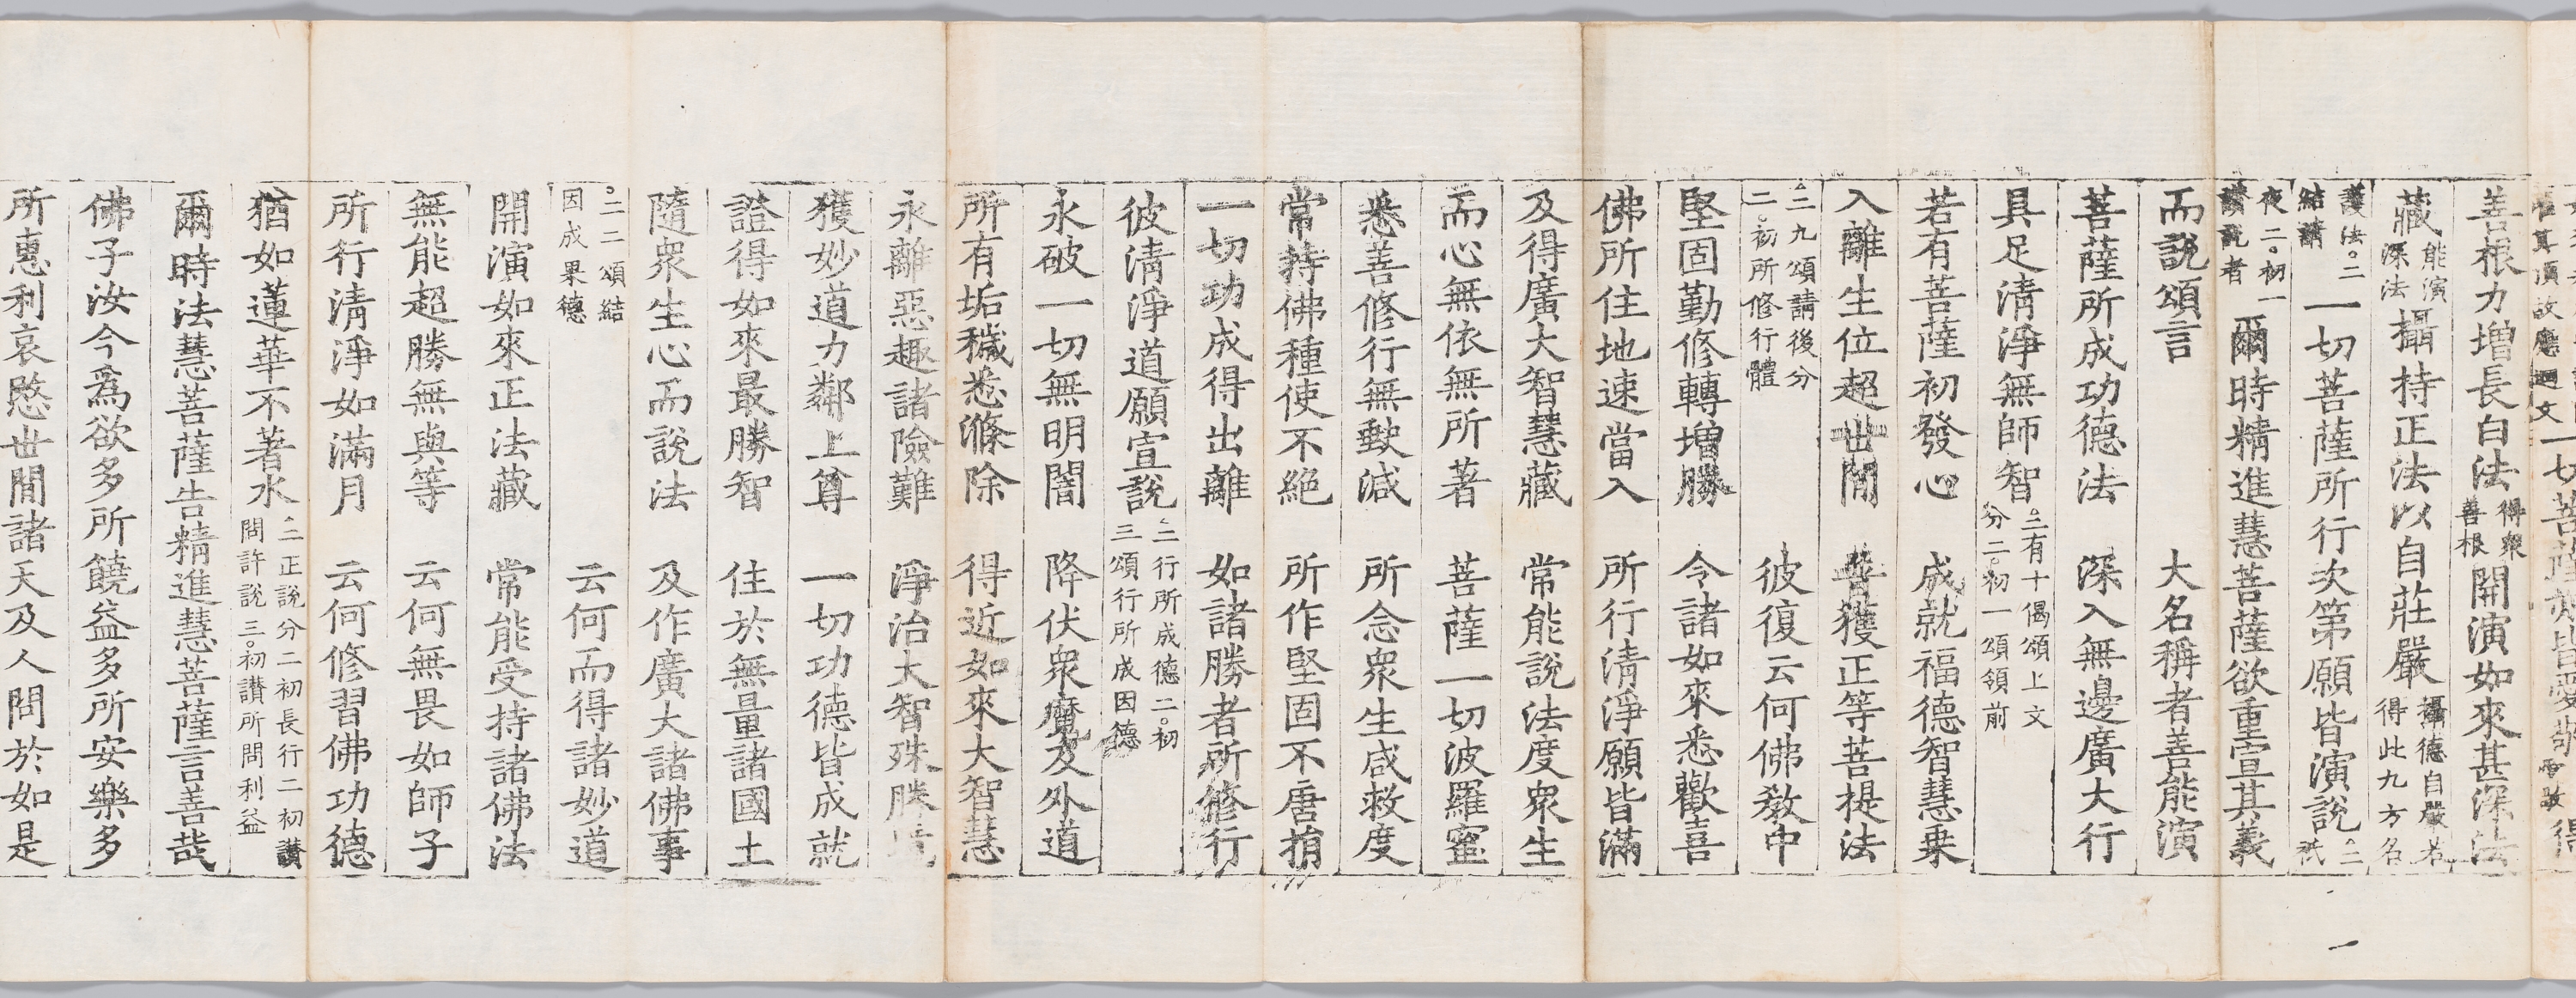 一切菩薩
善根力增長白法得衆善根開演如來甚深法
藏能演深法攝持正法以自莊嚴攝德自嚴若得此九方名
護法二結請一切菩薩所行次第願皆演說
夜二初一讚說者爾時精進慧菩薩欲重宣其義
而說頌言 大名稱者善能演
菩薩所成功德法 深入無邊廣大行
具足淸淨無師智三有十偈頌上文分二初一頌領前
若有菩薩初發心 成就福德智慧乗
入離生位超世間 普獲正等菩提法
二九頌請後分二初所修行體 彼復云何佛敎中
堅固勤修轉增勝 令諸如來悉歡喜
佛所住地速當入 所行淸淨願皆滿
及得廣大智慧藏 常能說法度衆生
而心無依無所著 菩薩一切波羅蜜
悉善修行無缺減 所念衆生咸救度
常持佛種使不絕 所作堅固不唐捐
一切功成得出離 如諸勝者所修行
彼淸淨道願宣說二行所成德二初三頌行所成因德
永破一切無明闇 降伏衆魔及外道
所有垢穢悉滌除 得近如來大智慧
永離惡趣諸險難 淨治大智殊勝境
獲妙道力鄰上尊 一切功德皆成就
證得如來最勝智 住於無量諸國土
隨衆生心而說法 及作廣大諸佛事
二二頌結因成果德 云何而得諸妙道
開演如來正法藏 常能受持諸佛法
無能超勝無與等 云何無畏如師子
所行淸淨如滿月 云何修習佛功德
猶如蓮華不著水二正說分二初長行二初讚問許說三初讃所問利益
爾時法慧菩薩告精進慧菩薩言善哉
佛子汝今爲欲多所饒益多所安樂多
所惠利哀愍世間諸天及人問於如是